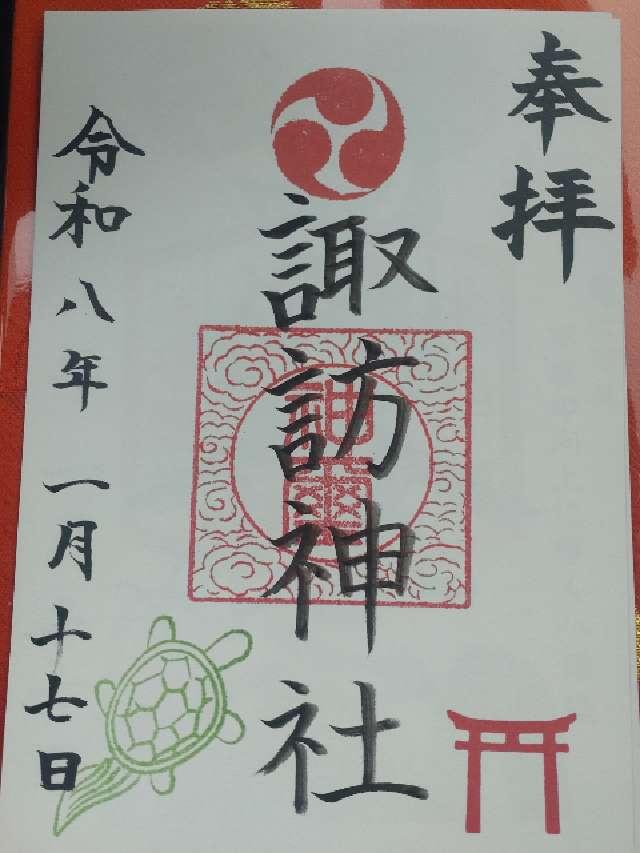 奉拝
諏訪神社
神璽
令和八年 一月十七日